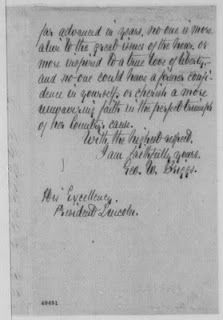 far advanced in years, no one is more
alive to the great issues of the hour, or
more inspired to a true love of liberty,
and no one could have a firmer confi-
dence in yourself, or cherish a more
unwavering faith in the perfect triumph
of her Country's cause.
With the highest respect,
I am faithfully yours.
Geo. W. Briggs.
His Excellency,
President Lincoln.